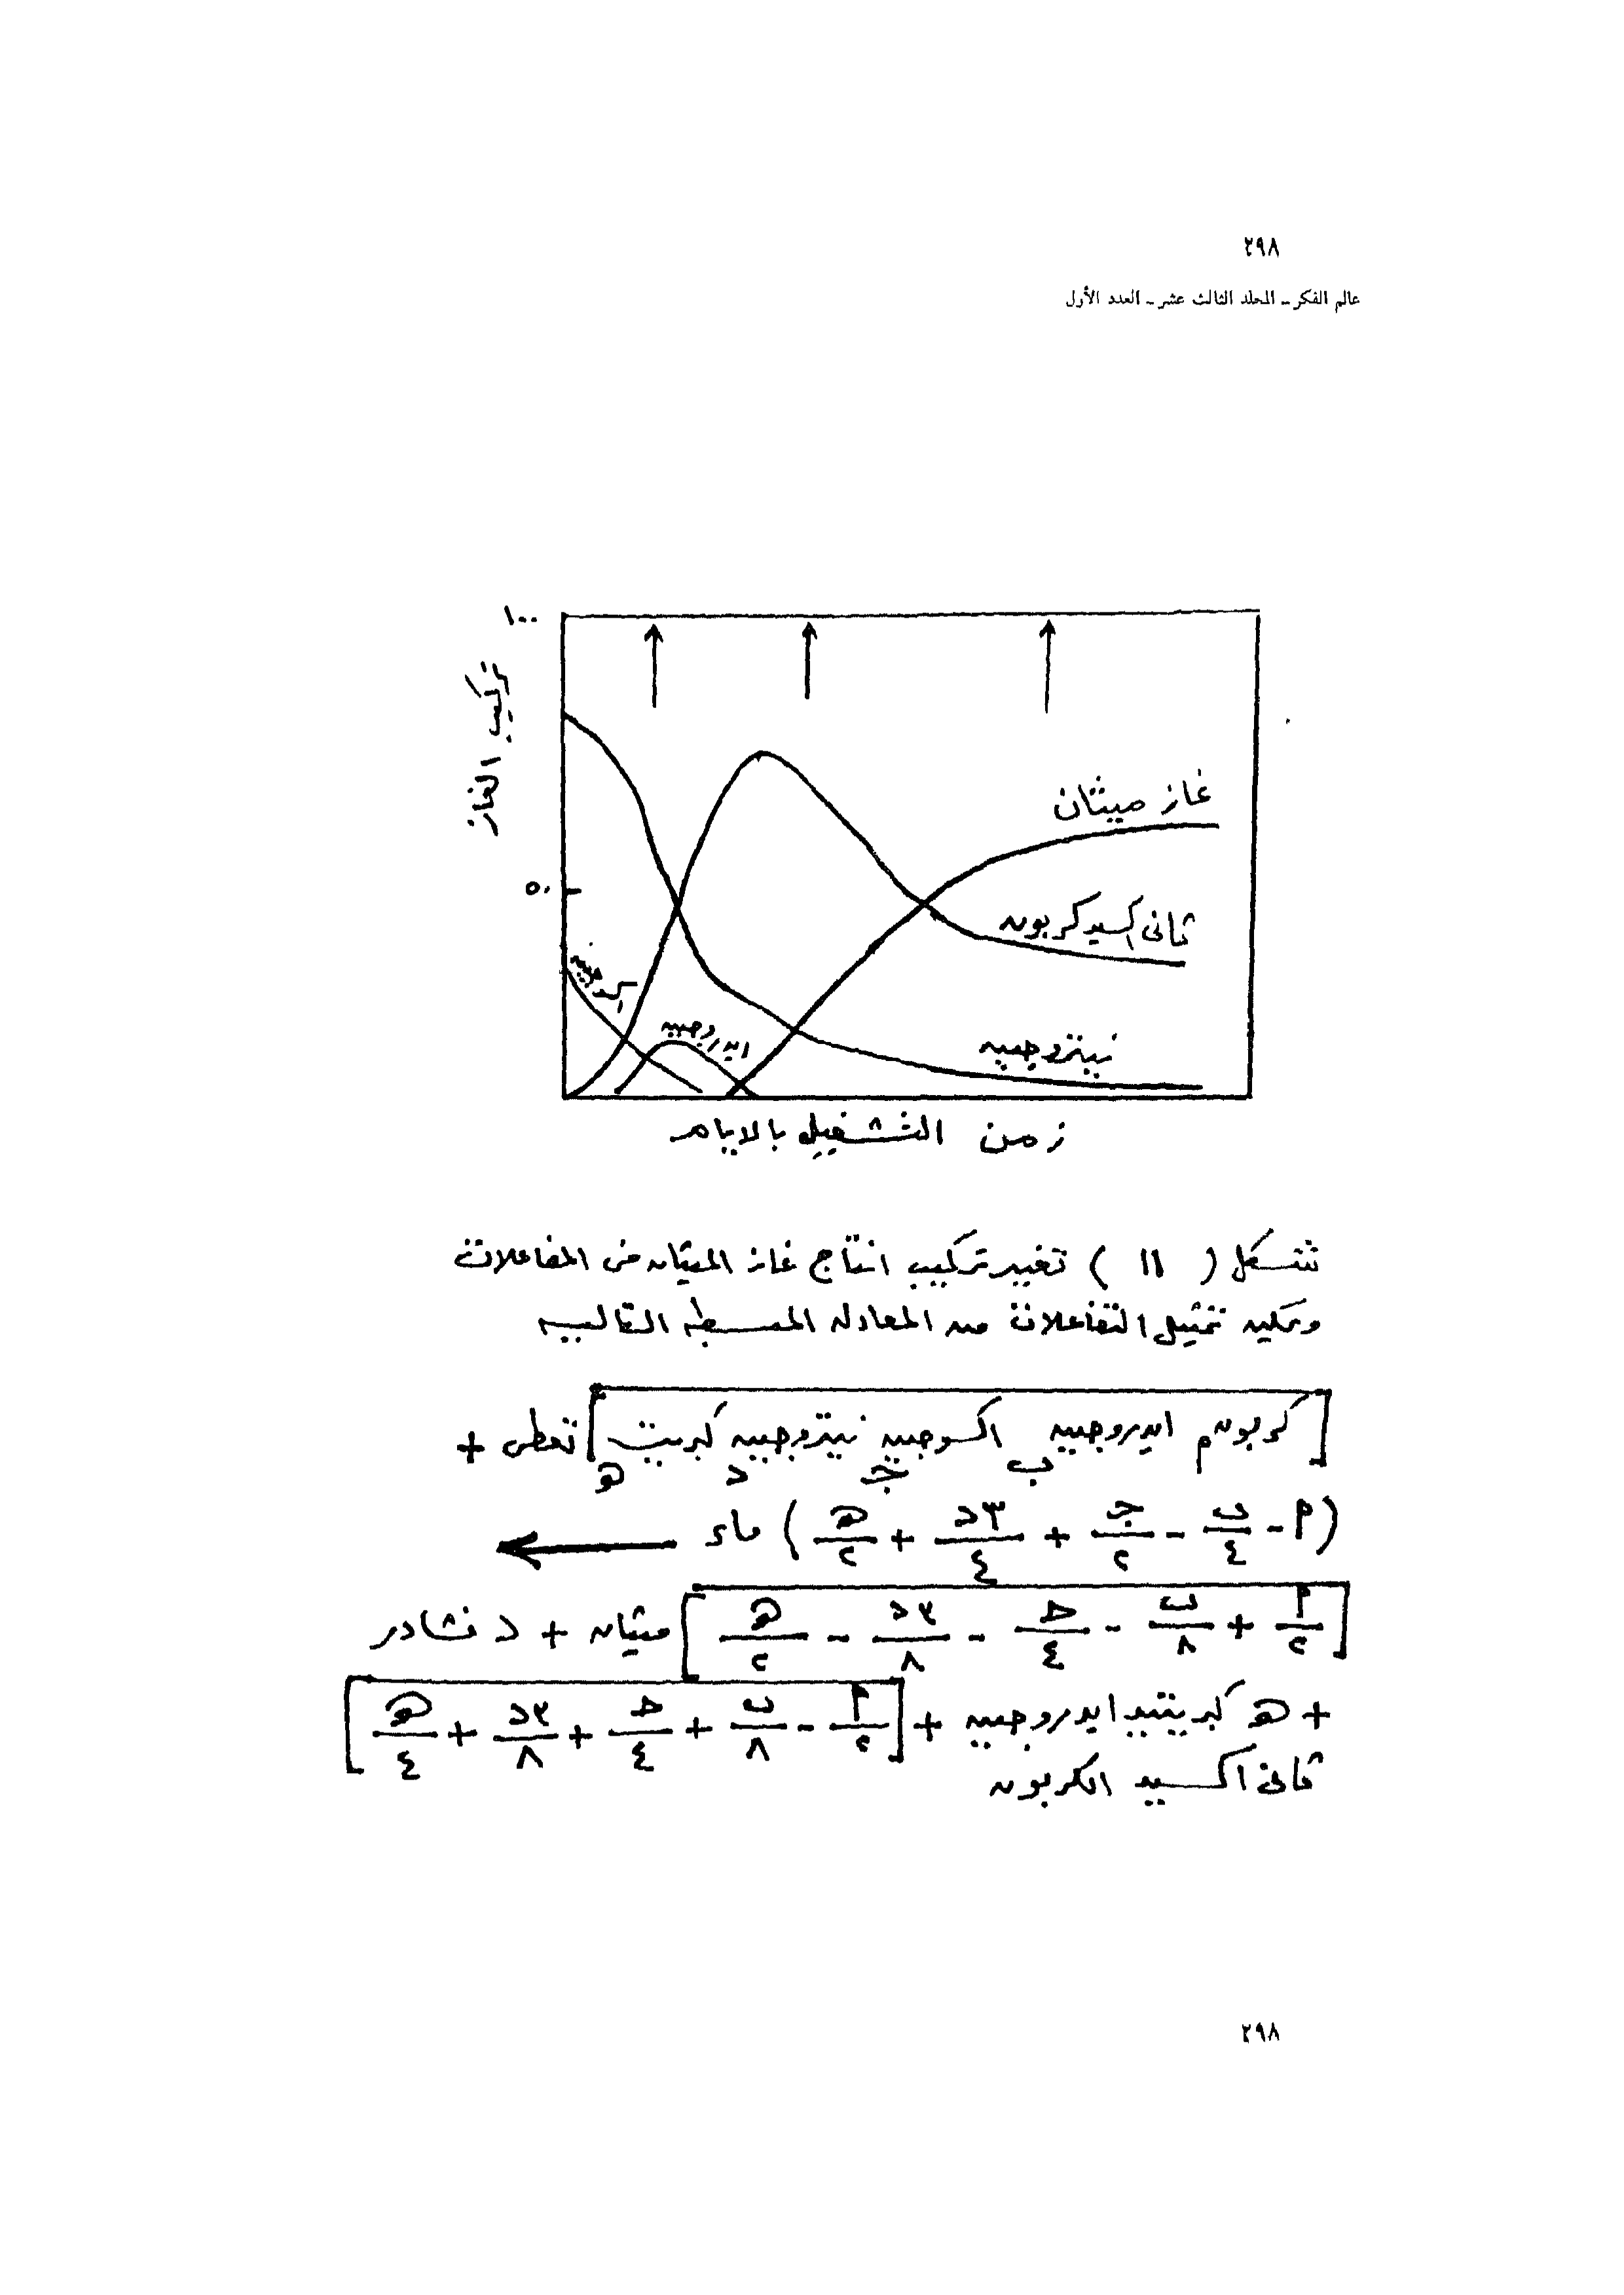 ٢٩٨
عالم الفكر ـ المجلد الثالث عشر ـ العدد الأول
١٠٠
تركيب الغاز
٥٠
غاز ميثان
ثانى اكسيد كربون
اكسوجين
ايدروجين
نيتروجين
زمن التشغيل بالايام
شكل ( ١١ ) تغيير تركيب انتاج غاز الميثان من المفاعلات
ويمكن تمثيل التفاعلات من المعادله المبسطه التاليه
[كربون أ ايدروجين ب اكسوجين جـ نيتروجين د كبريت هـ] تعطى +
(أ - ب/٤ - جـ/٢ + ٣د/٤ + هـ/٢) ماء ←
[أ/٢ + ب/٨ - جـ/٤ - ٣د/٨ - هـ/٢] ميثان + د نشادر
+ هـ كبريتيد ايدروجين + [أ/٢ - ب/٨ + جـ/٤ + ٣د/٨ + هـ/٤]
ثانى اكسيد الكربون
٢٩٨